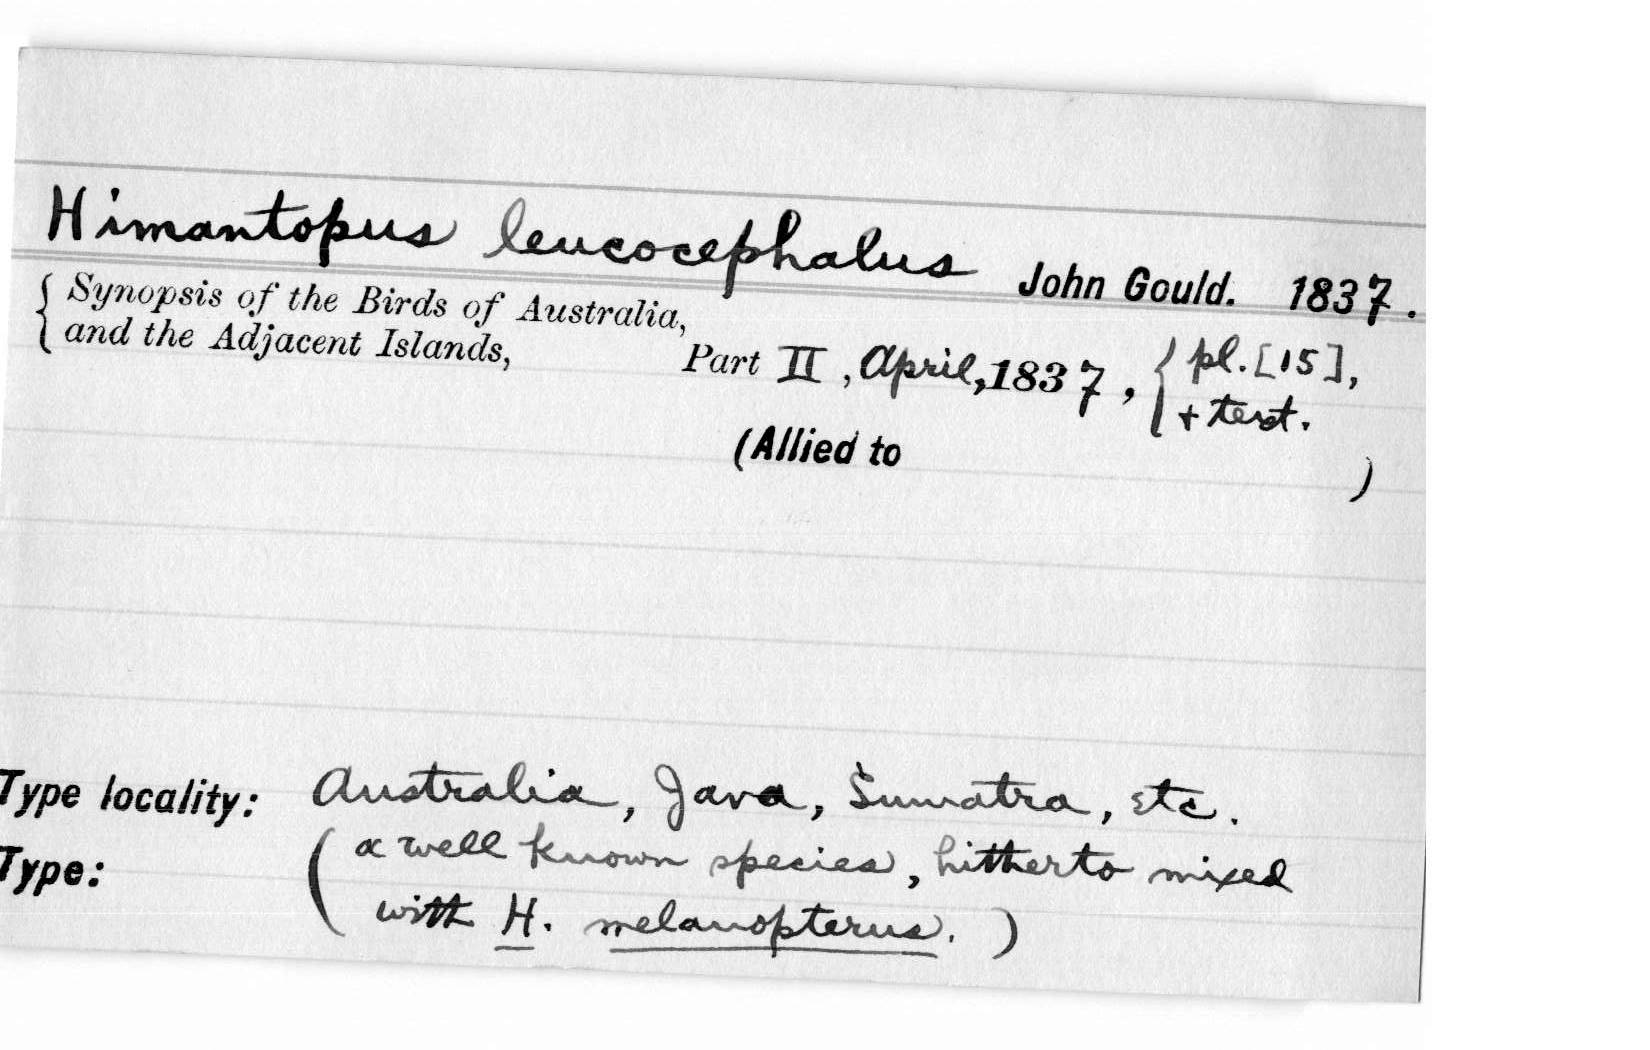 Himantopus leucocephalus John Gould. 1837.
{ Synopsis of the Birds of Australia,
and the Adjacent Islands,
Part II, April, 1837, { pl. [15],
+ text.
(Allied to )
Type locality: Australia, Java, Sumatra, etc.
Type: ( a well known species, hitherto mixed
with H. melanopterus. )